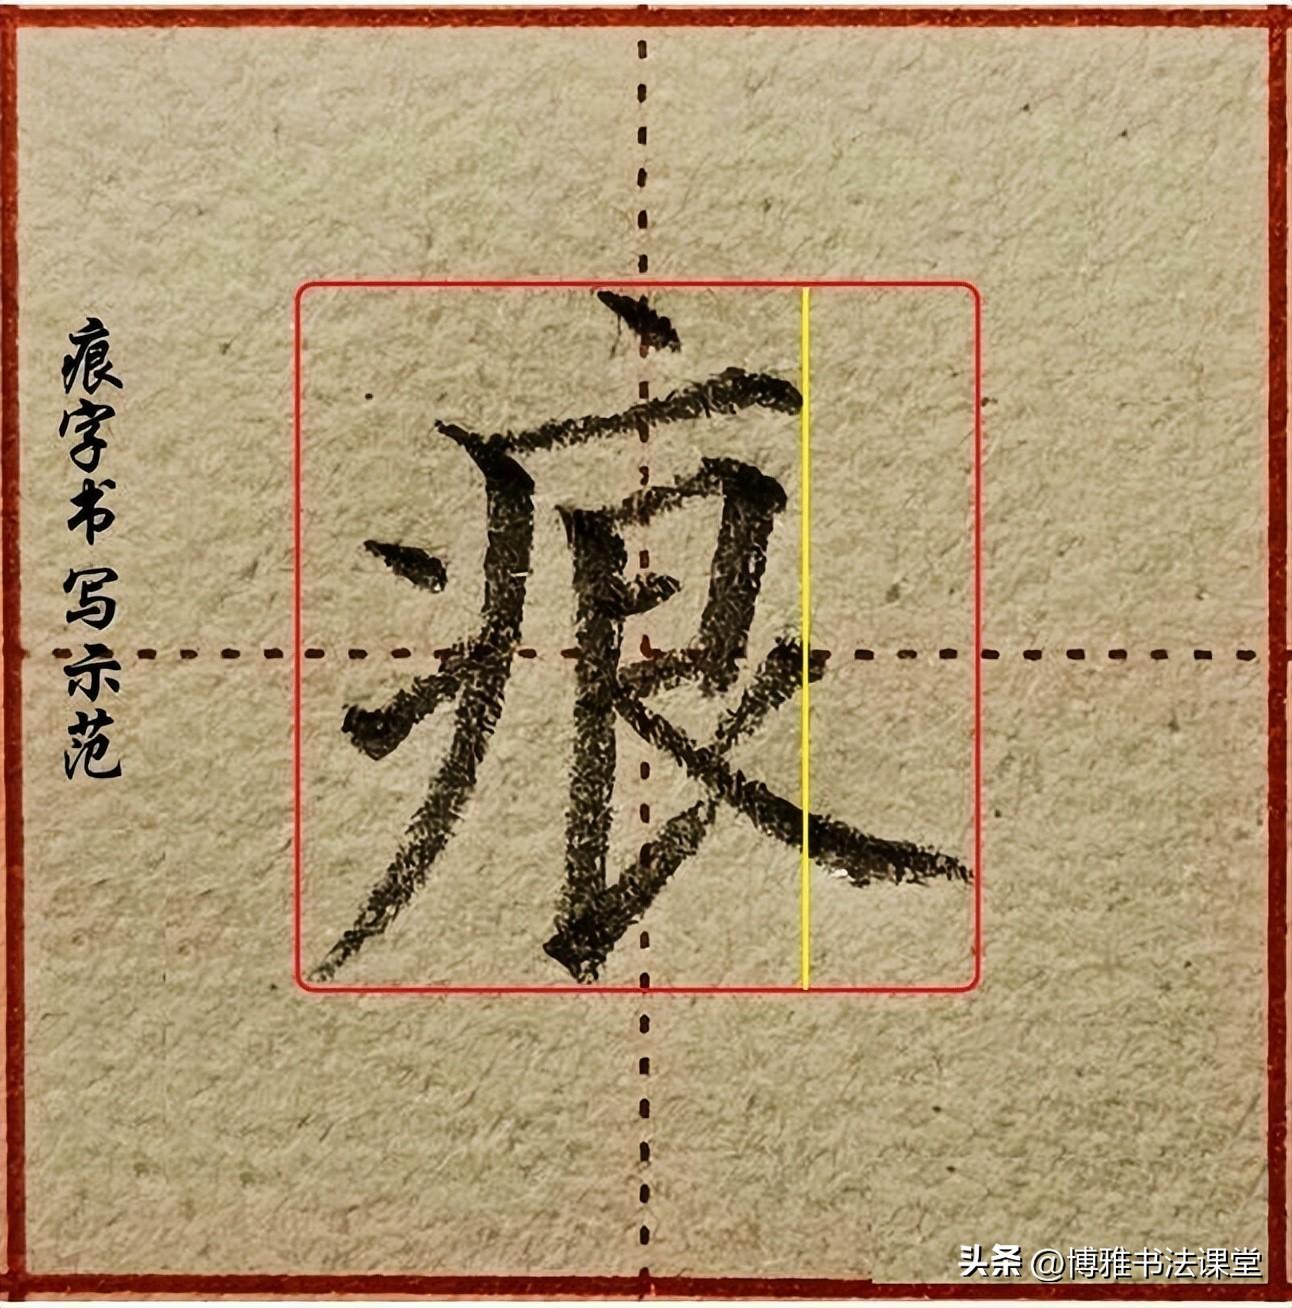 痕字书写示范
痕
头条 @博雅书法课堂